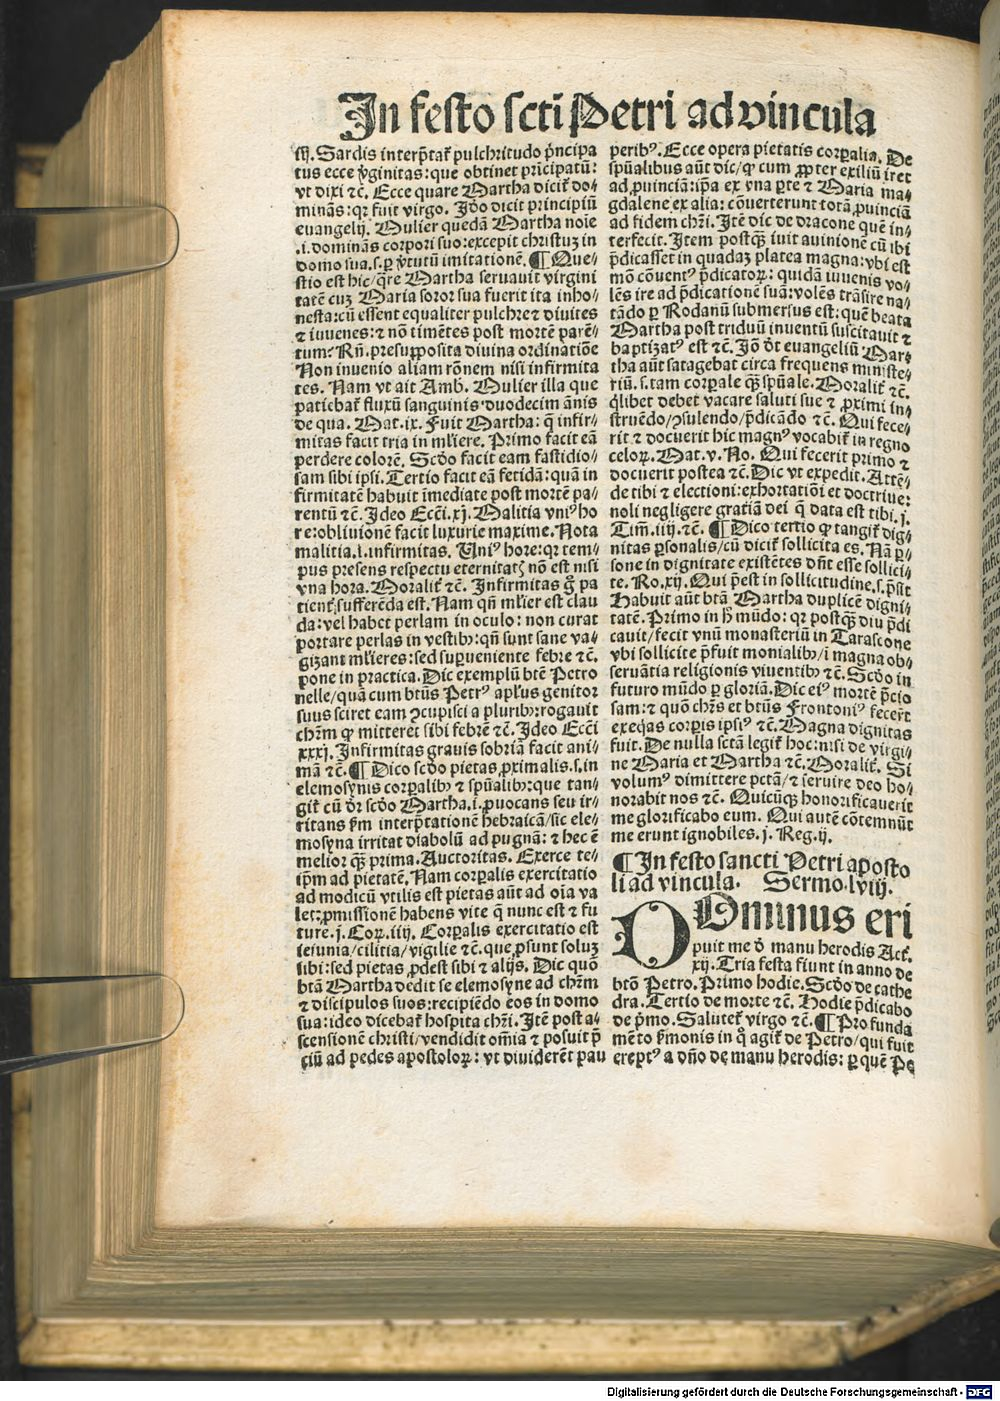 In festo scti Petri ad vincula
iij. Sardis interp̃tat̃ pulchritudo p̃ncipa
tus ecce ṽginitas: que obtinet pricipatũ:
vt dixi ⁊c̃. Ecce quare Martha dicit̃ do⸗
minãs: qr fuit virgo. Jdõ dicit principiũ
euangelij. Mulier quedã Martha noĩe
.i. dominãs corpori suo: excepit christuȝ in
domo sua. s. ꝑ ṽtutũ imitationẽ. ¶ Que⸗
stio est hic/ q̃re Martha seruauit virgini
tatẽ cuȝ Maria soror sua fuerit ita inho⸗
nesta: cũ essent equaliter pulchre ⁊ diuites
⁊ iuuenes: ⁊ nõ timẽtes post mortẽ parẽ⸗
tum? Rñ. presupposita diuina ordinatiõe
Non inuenio aliam rõnem nisi infirmita
tes. Nam vt ait Amb. Mulier illa que
patiebat̃ fluxũ sanguinis duodecim ãnis
de qua. Mat. ix. Fuit Martha: q̃ infir⸗
mitas facit tria in ml̃iere. Primo facit eã
perdere colorẽ. Scðo facit eam fastidio⸗
sam sibi ipsi. Tertio facit eã fetidã: quã in
firmitatẽ habuit ĩmediate post mortẽ pa⸗
rentũ ⁊c̃. Ideo Ecc̃i. xj. Malitia vniꝰ ho
re: obliuionẽ facit luxurie maxime. Nota
malitia. i. infirmitas. Vniꝰ hore: qr tem⸗
pus presens respectu eternitatꝭ nõ est nisi
vna hora. Moralit̃ ⁊c̃. Infirmitas g̃ pa
tient̃ sufferẽda est. Nam qñ ml̃ier est clau
da: vel habet perlam in oculo: non curat
portare perlas in vestibꝰ: qñ sunt sane va⸗
gizant ml̃ieres: sed supueniente febre ⁊c̃.
pone in practica. Dic exemplũ btẽ Petro
nelle/ quã cum btũs Petrꝰ apl̃us genitor
suus sciret eam ↄcupisci a pluribꝰ: rogauit
chr̃m ꝙ mitteret sibi febrẽ ⁊c̃. Ideo Ecc̃i
xxxj. Infirmitas grauis sobriã facit ani⸗
mã ⁊c̃. ¶ Dico scðo pietas ꝓximalis. s. in
elemosynis corpalibꝰ ⁊ sp̃ualibꝰ: que tan⸗
git̃ cũ dr̃ scðo Martha. i. ꝓuocans seu ir⸗
ritans p̃m interp̃tationẽ hebraicã/ sic ele⸗
mosyna irritat diabolũ ad pugnã: ⁊ hec ẽ
melior q̃ȝ prima. Auctoritas. Exerce te⸗
ip̃m ad pietatẽ. Nam corꝑalis exercitatio
ad modicũ vtilis est pietas aũt ad oĩa va
let: ꝓmissionẽ habens vite q̃ nunc est ⁊ fu
ture. j. Coꝝ. iiij. Corꝑalis exercitatio est
ieiunia/ cilitia/ vigilie ⁊c̃. que ꝓsunt soluȝ
sibi: sed pietas ꝓdest sibi ⁊ alijs. Dic quõ
btã Martha dedit se elemosyne ad chr̃m
⁊ discipulos suos: recipiẽdo eos in domo
sua: ideo dicebat̃ hospita chr̃i. Itẽ post a⸗
scensionẽ christi/ vendidit om̃ia ⁊ posuit p̃
ciũ ad pedes apostoloꝝ: vt diuiderẽt pau
peribꝰ. Ecce opera pietatis corꝑalia. De
sp̃ualibus aũt dic/ ꝙ cum ꝓpter exiliũ iret
ad ꝓuinciã: ip̃a ex vna ꝑte ⁊ Maria ma⸗
gdalene ex alia: cõuerterunt totã ꝓuinciã
ad fidem chr̃i. Itẽ dic de dracone quẽ in⸗
terfecit. Item postq̃ȝ iuit auinionẽ cũ ibi
p̃dicasset in quadaȝ platea magna: vbi est
mõ cõuentꝰ p̃dicatoꝝ: quidã iuuenis vo⸗
lẽs ire ad p̃dicationẽ suã: volẽs trãsire na⸗
tãdo ꝑ Rodanũ submersus est: quẽ beata
Martha post triduũ inuentũ suscitauit ⁊
baptizatꝰ est ⁊c̃. Iõ ðt euangeliũ Mar⸗
tha aũt satagebat circa frequens ministe⸗
riũ. s. tam corꝑale q̃ȝ sp̃uale. Moralit̃ ⁊c̃.
q̃libet debet vacare saluti sue ⁊ ꝓximi in⸗
struẽdo/ ↄsulendo/ p̃dicãdo ⁊c̃. Qui fece⸗
rit ⁊ docuerit hic magnꝰ vocabit̃ in regno
celoꝝ. Mat. v. No. Qui fecerit primo ⁊
docuerit postea ⁊c̃. Dic vt expedit. Attẽ⸗
de tibi ⁊ electioni: exhortatiõi et doctrine:
noli negligere gratiã dei q̃ data est tibi. j.
Tim. iiij. ⁊c̃. ¶ Dico tertio ꝙ tangit̃ dig⸗
nitas ꝑsonalis/ cũ dicit̃ sollicita es. Nã ꝑ⸗
sone in dignitate existẽtes dñt esse sollici⸗
te. Ro. xij. Qui p̃est in sollicitudine. s. p̃sit
Habuit aũt btã Martha duplicẽ digni⸗
tatẽ. Primo in h̃ mũdo: qr postq̃ȝ diu p̃di
cauit/ fecit vnũ monasteriũ in Tarascone
vbi sollicite p̃fuit monialibꝰ/ ĩ magna ob⸗
seruãtia religionis viuentibꝰ ⁊c̃. Scðo in
futuro mũdo ꝑ gloriã. Dic eiꝰ mortẽ p̃cio
sam: ⁊ quõ chr̃s et btũs Frontoniꝰ fecerũt
exeq̃as corꝑis ipsiꝰ ⁊c̃. Magna dignitas
fuit. De nulla sctã legit̃ hoc: nisi de virgi⸗
ne Maria et Martha ⁊c̃. Moralit̃. Si
volumꝰ dimittere pctã/ ⁊ seruire deo ho⸗
norabit nos ⁊c̃. Quicũq̃ȝ honorificauerit
me glorificabo eum. Qui autẽ cõtemnũt
me erunt ignobiles. j. Reg. ij.
¶ In festo sancti Petri aposto
li ad vincula. Sermo. lviij.
DOminus eri
puit me ð manu herodis Act̃.
xij. Tria festa fiunt in anno de
btõ Petro. Primo hodie. Scðo de cathe
dra. Tertio de morte ⁊c̃. Hodie p̃dicabo
de p̃mo. Salutet̃ virgo ⁊c̃. ¶ Pro funda
mẽto ẽmonis in q̃ agit̃ de Petro/ qui fuit
ereptꝰ a dño de manu herodis: ꝑ quẽ Pe
Digitalisierung gefördert durch die Deutsche Forschungsgemeinschaft - DFG